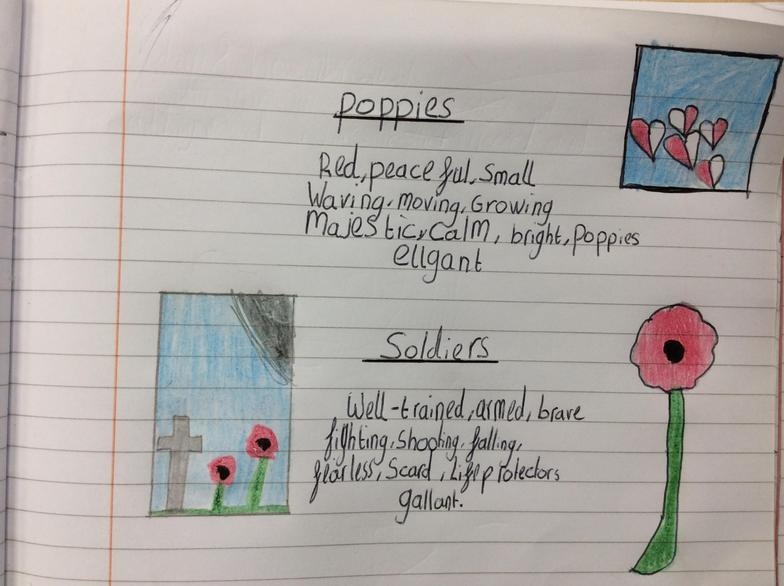 Poppies
Red, peaceful, Small
Waving, moving, Growing
Majestic, Calm, bright, Poppies
ellgant
Soldiers
Well-trained, armed, brave
fighting, Shooting, falling,
fearless, Scard, Life protectors
gallant.